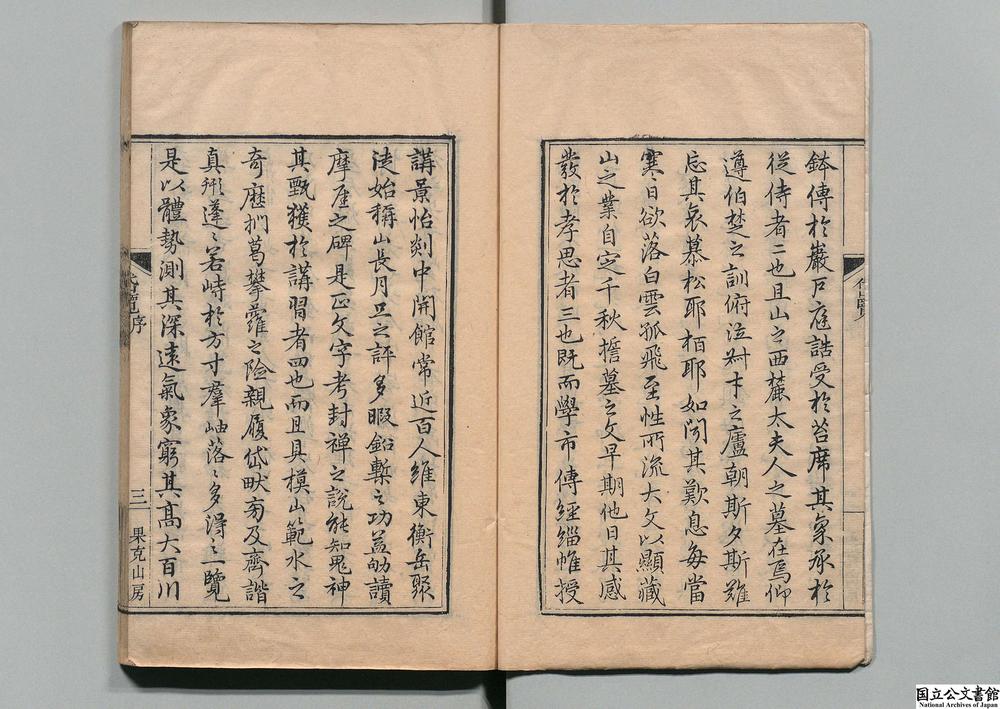 鉢傳於巖戶庭誥受於苔席其稟承於
從侍者二也且山之西麓太夫人之墓在焉仰
遵伯埜之訓俯泣之廬朝斯夕斯難
忘其哀慕松耶栢耶如聞其歎息每當
寒日欲落白雲孤飛至性所流大文以顯藏
山之業自定千秋擔墓之文早期他日其感
發於孝思者三也既而學市傳經緇帷授
講景怡剡中開館常近百人維東衡岳聚
徒始稱山長月旦之評多暇鉛槧之功益劬讀
摩厓之碑是正文字考封禅之說能知鬼神
其甄獲於講習者四也而且具模山範水之
奇歷捫葛攀蘿之險親履岱畎旁及齊諧
真形蓬〻若峙於方寸羣岫落〻多得之一覽
是以體勢測其深遠氣象窮其髙大百川
岱覽序
三
果克山房
国立公文書館
National Archives of Japan